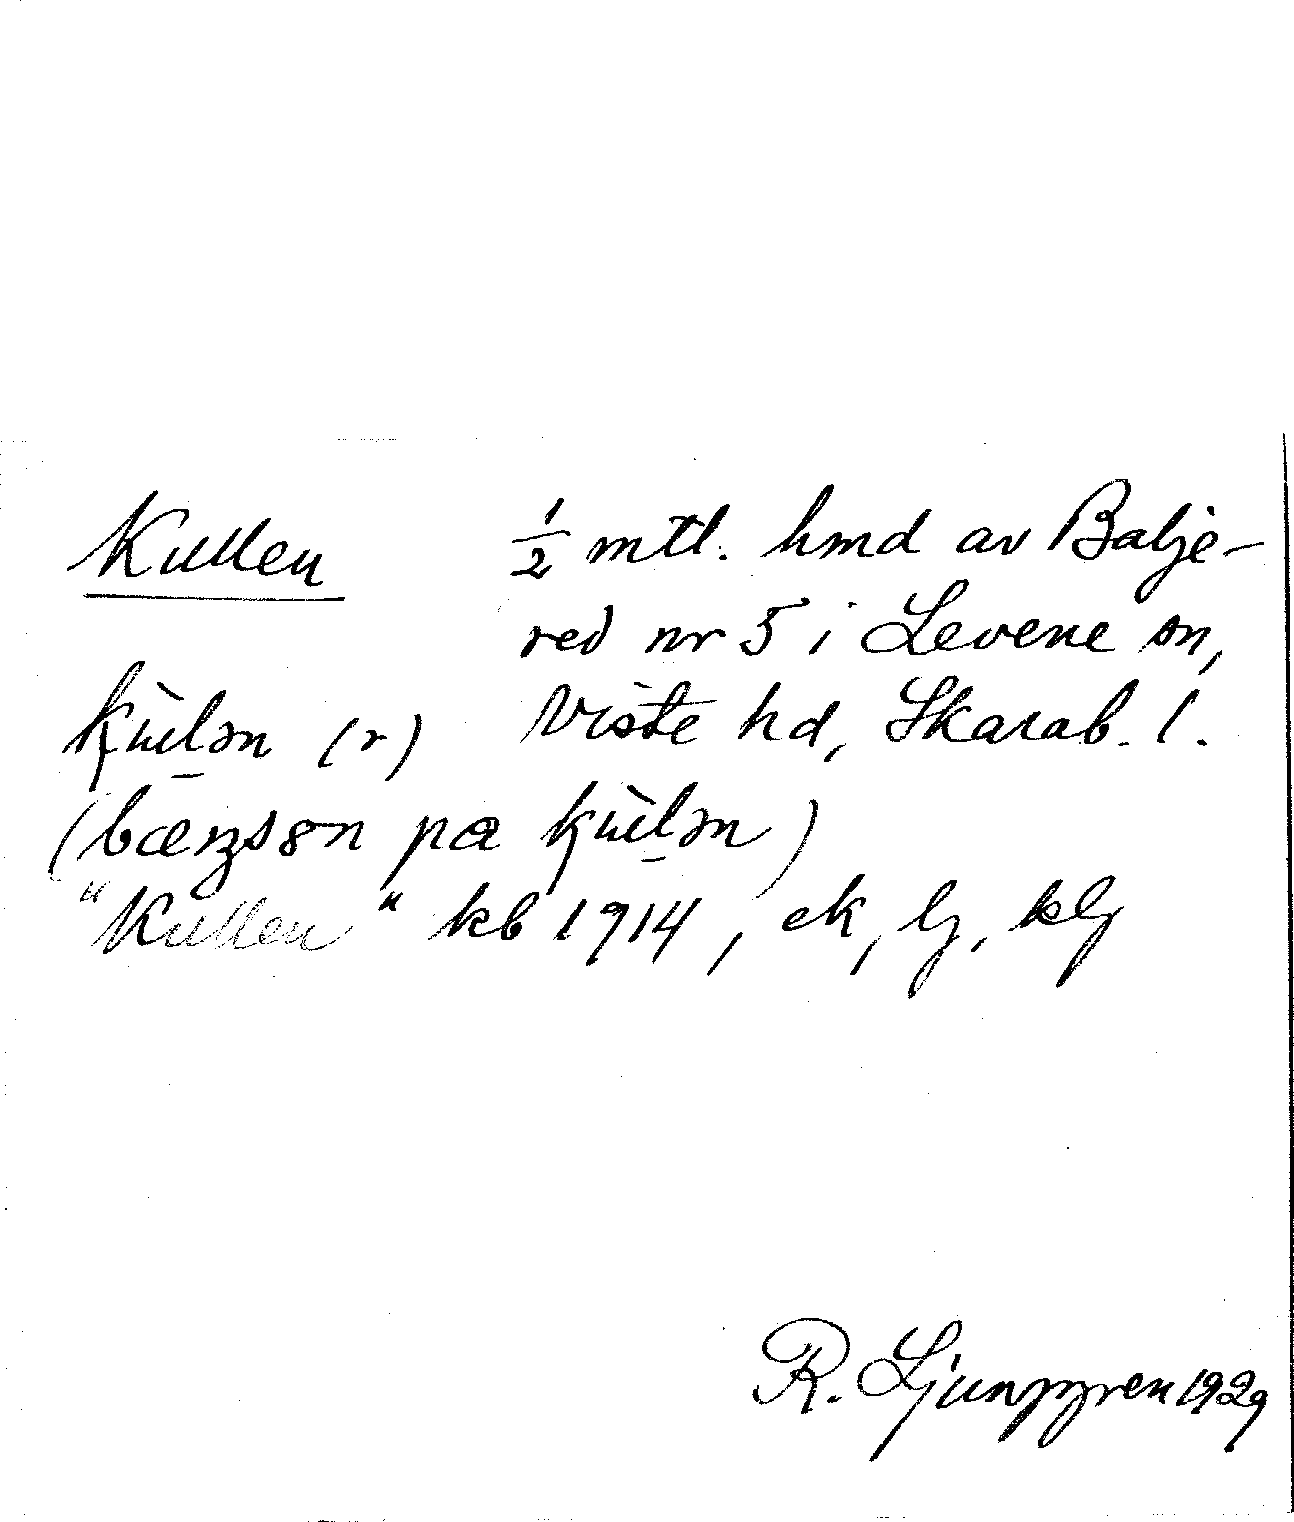 Kullen
½ mtl. hmd av Balje-
red nr 5 i Levene sn,
Viste hd, Skarab. l.
(r)
"Kullen" kb 1914, ek, lj, klj
R. Ljunggren 1929